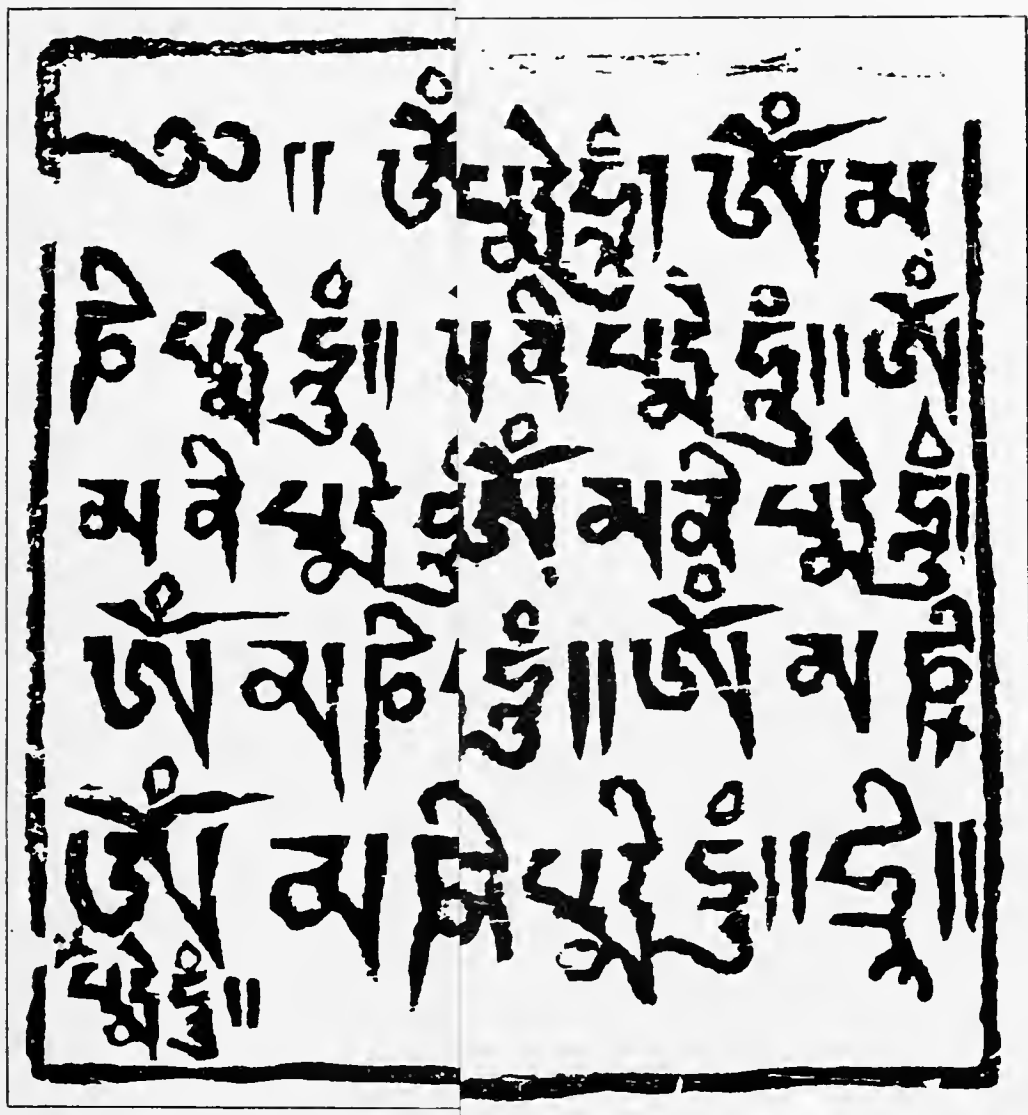 ༄༅།། ཨོཾ པདྨེ་ཧཱུྃ། ཨོཾ་མ
ཎི་པདྨེ་ཧཱུྃ།། ནི་པདྨེ་ཧཱུྃ།། ཨོཾ
མ་ནི་པདྨེ་ཧཱུྃ ཨོཾ་མ་ནི་པདྨེ་ཧཱུྃ།
ཨོཾ་མ་ཎི ཧཱུྃ།། ཨོཾ་མ་ཎི
ཨོཾ་མ་ཎི་པདྨེ་ཧཱུྃ།། ཧྲི།།
པདྨེ་ཧཱུྃ།།